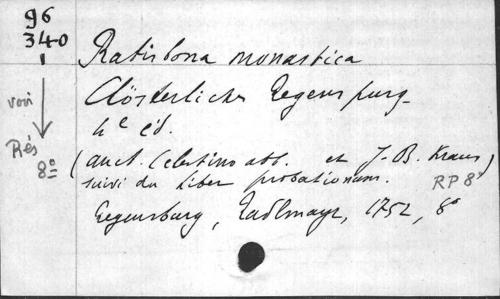 96
340
Ratisbona monastica
Clösterliches Regenspurg.
4e éd.
voir
Rés
8º
(auct. Celestino abb. et J.-B. Kraus)
suivi du Liber probationum.
RP 8º
Regensburg, Radlmayr, 1752, 8º